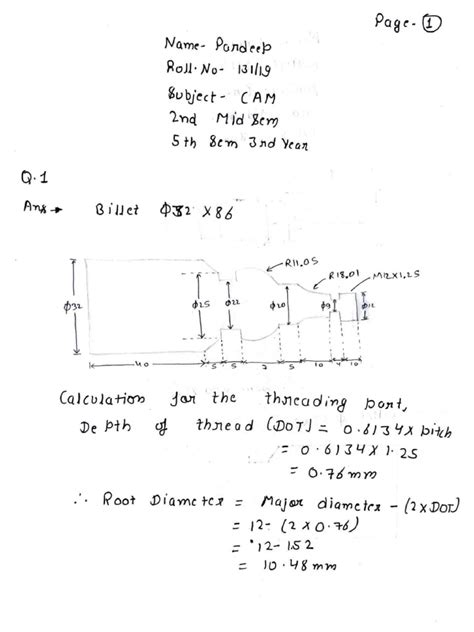 Page - ①
Name - Pardeep
Roll. No - 131/19
Subject - CAM
2nd Mid Sem
5th Sem 3rd Year
Q.1
Ans → Billet Φ32 X 86
R11.05
R18.01
M12X1.25
Φ32
Φ25
Φ22
Φ20
Φ9
Φ12
40 5 5 7 5 10 4 10
Calculation for the threading part,
Depth of thread (DOT) = 0.6134 X pitch
= 0.6134 X 1.25
= 0.76 mm
∴ Root Diameter = Major diameter - (2 X DOT)
= 12 - (2 X 0.76)
= 12 - 1.52
= 10.48 mm